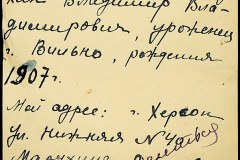 как Владимир Вла-
димирович, уроженец
г. Вильно, рождения
1907 г.
Мой адрес: г. Херсон
ул. Нижняя N 4